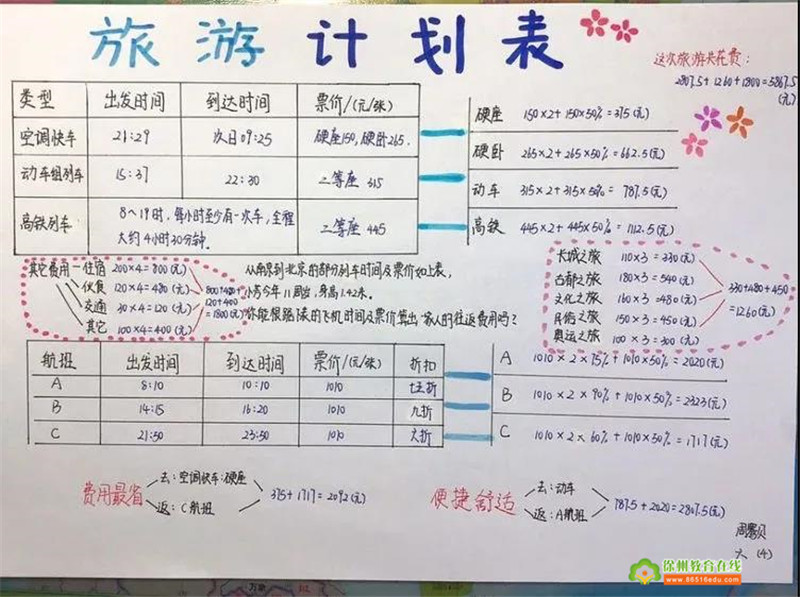 旅游计划表
这次旅游共花费:
2807.5+1260+1800=5867.5
(元)
类型 出发时间 到达时间 票价/(元/张)
空调快车 21:29 次日09:25 硬座150,硬卧265.
动车组列车 15:37 22:30 二等座 315
高铁列车 8~19时,每小时至少有一次车,全程 二等座 445
大约4小时30分钟.
硬座 150×2+150×50%=375(元)
硬卧 265×2+265×50%=662.5(元)
动车 315×2+315×50%=787.5(元)
高铁 445×2+445×50%=1112.5(元)
其它费用-住宿 200×4=800(元)
伙食 120×4=480(元)
交通 30×4=120(元)
其它 100×4=400(元)
800+480+
120+400
=1800(元)
从南京到北京的部分列车时间及票价如上表,
今年11周岁,身高1.42米.
你能根据下表的飞机时间及票价算出 家人的往返费用吗?
长城之旅 110×3=330(元)
古都之旅 180×3=540(元)
文化之旅 160×3=480(元)
之旅 150×3=450(元)
奥运之旅 100×3=300(元)
330+480+450
=1260(元)
航班 出发时间 到达时间 票价/(元/张) 折扣
A 8:10 10:10 1010 七五折
B 14:15 16:20 1010 九折
C 21:50 23:50 1010 六折
A 1010×2×75%+1010×50%=2020(元)
B 1010×2×90%+1010×50%=2323(元)
C 1010×2×60%+1010×50%=1717(元)
费用最省
去:空调快车:硬座
返:C航班
375+1717=2092(元)
便捷舒适
去:动车
返:A航班
787.5+2020=2807.5(元)
六(4)
徐州教育在线
www.86516edu.com